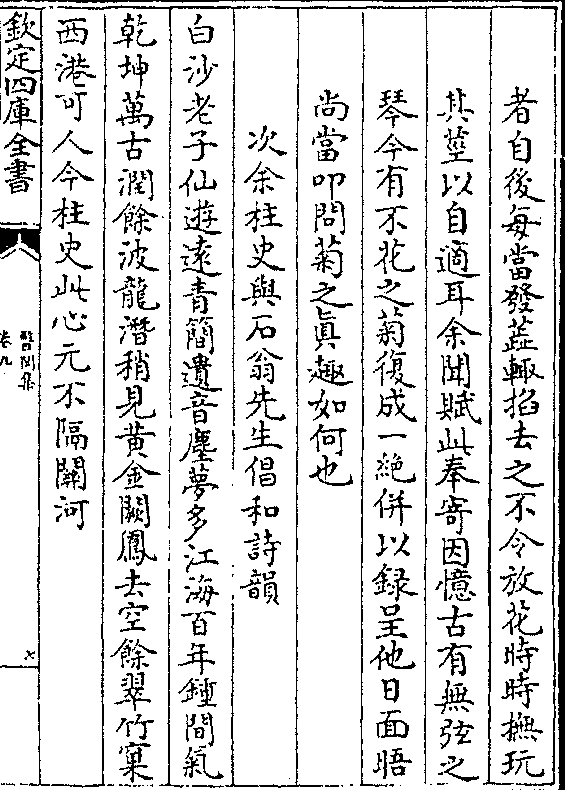 者自後每當發蕋輙掐去之不令放花時時撫玩
其莖以自適耳余聞賦此奉寄因憶古有無弦之
琴今有不花之菊復成一絶併以録呈他日面晤
尚當叩問菊之眞趣如何也
次余柱史與石翁先生倡和詩韻
白沙老子仙遊逺青簡遺音塵夢多江海百年鍾間氣
乾坤萬古潤餘波龍潛稍見黄金闕鳳去空餘翠竹窠
西港可人今柱史此心元不隔關河
欽定四庫全書
醫閭集
卷九
七